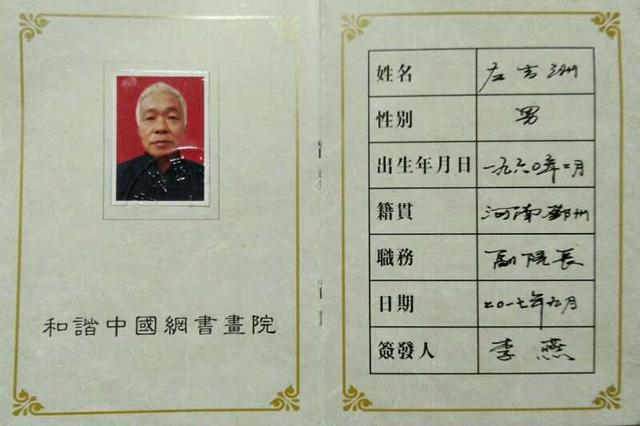 和諧中國網書畫院
姓名 左吉洲
性别 男
出生年月日 一九六〇年二月
籍貫 河南鄭州
職務 副院長
日期 二〇一七年九月
簽發人 李燕